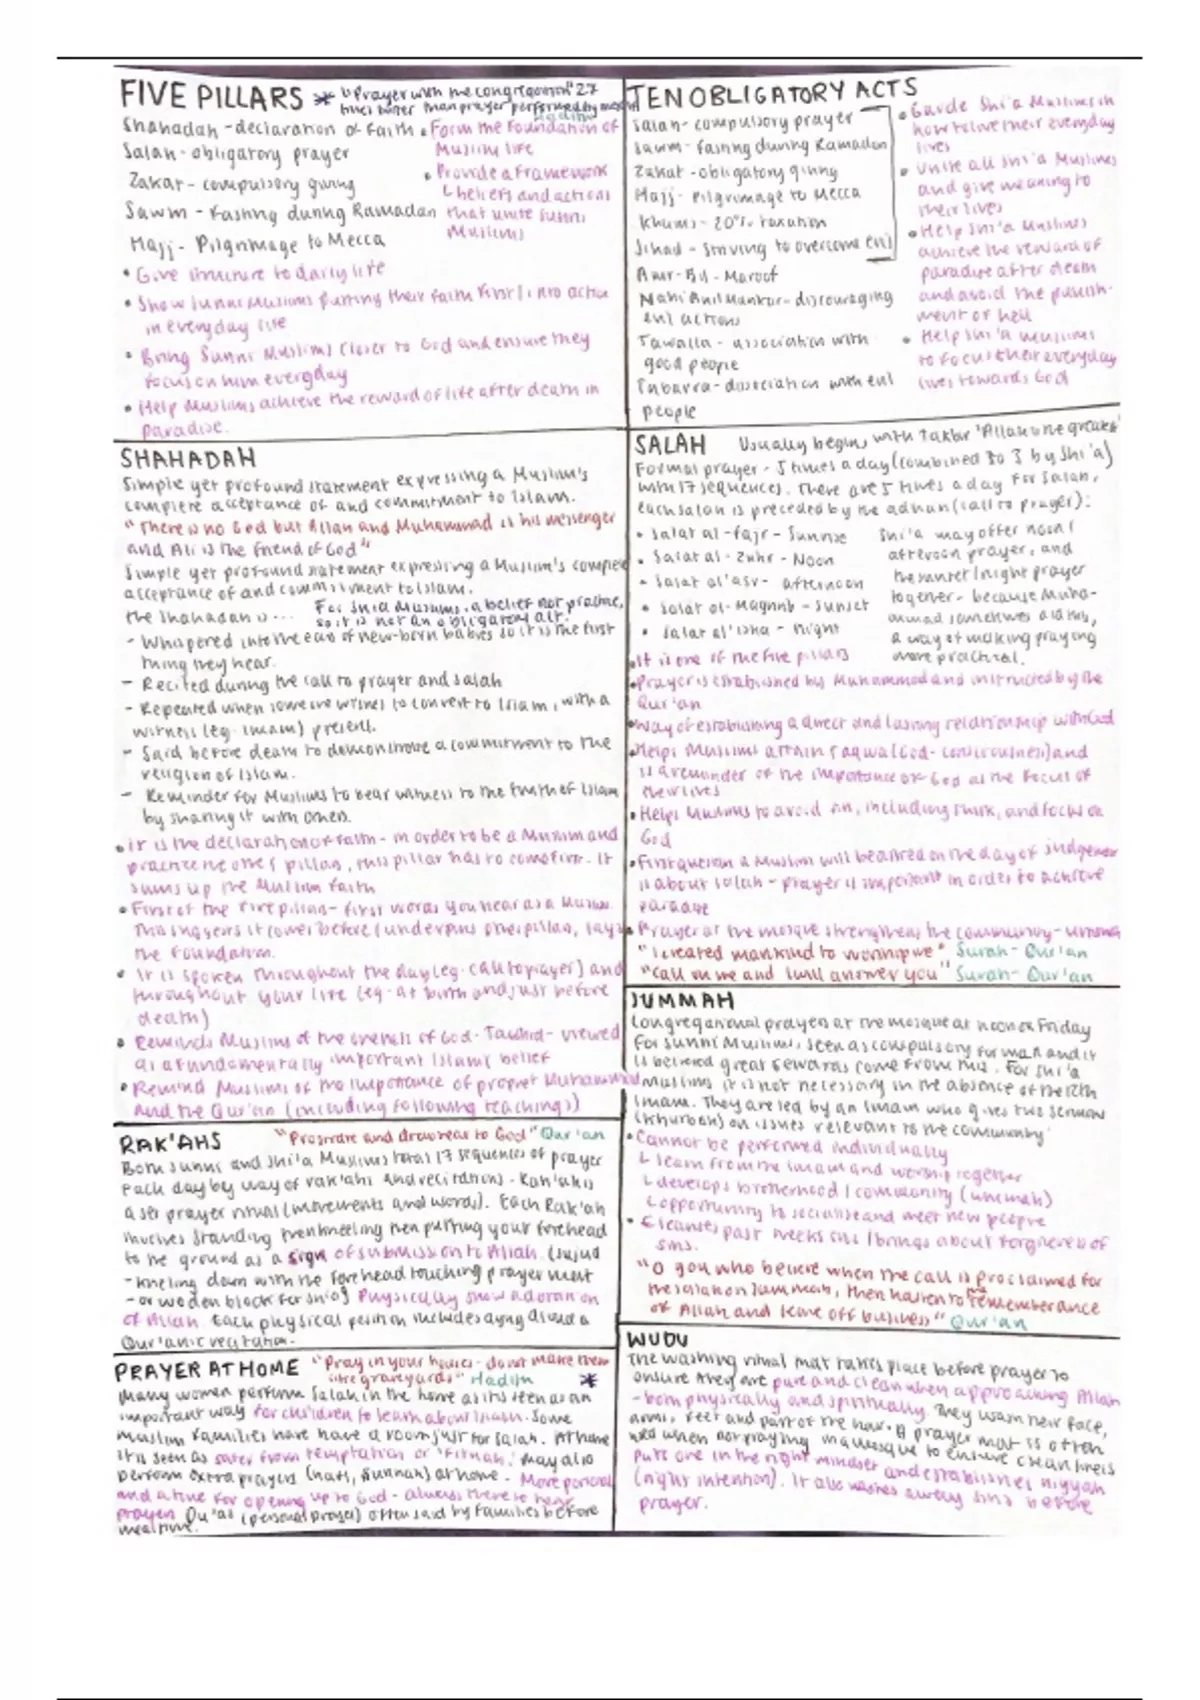 FIVE PILLARS * Prayer with the congregation "27
times better than prayer performed by
Shahadah - declaration of faith
Salah - obligatory prayer
Zakat - compulsory giving
Sawm - Fasting during Ramadan
Hajj - Pilgrimage to Mecca
• Form the foundation of
Muslim life
• Provide a framework
beliefs and actions
that unite Sunni
Muslims
• Give structure to daily life
• Show Sunni Muslims putting their faith first into action
in everyday life
• Bring Sunni Muslims closer to God and ensure they
focus on him everyday
• Help Muslims achieve the reward of life after death in
paradise.
TEN OBLIGATORY ACTS
Salah - compulsory prayer
Sawm - fasting during Ramadan
Zakat - obligatory giving
Hajj - Pilgrimage to Mecca
Khums - 20% taxation
Jihad - Striving to overcome evil
Amr-Bil-Maroof
Nahi Anil Munkar - discouraging
evil actions
Tawalla - association with
good people
Tabarra - dissociation with evil
people
• Guide Shi'a Muslims in
how to live their everyday
lives
• Unite all Shi'a Muslims
and give meaning to
their lives
• Help Shi'a Muslims
achieve the reward of
paradise after death
and avoid the punish-
ment of hell
• Help Shi'a Muslims
to focus their everyday
lives towards God
SHAHADAH
Simple yet profound statement expressing a Muslim's
complete acceptance of and commitment to Islam.
"There is no God but Allah and Muhammad is his messenger
and Ali is the friend of God"
Simple yet profound statement expressing a Muslim's complete
acceptance of and commitment to Islam.
the Shahadah is... For Shi'a Muslims, a belief not practice,
so it is not an obligatory act.
- Whispered into the ears of new-born babies so it is the first
thing they hear.
- Recited during the call to prayer and salah
- Repeated when someone wishes to convert to Islam, with a
witness (eg. imam) present.
- Said before death to demonstrate a commitment to the
religion of Islam.
- Reminder for Muslims to bear witness to the truth of Islam
by sharing it with others.
• It is the declaration of faith - in order to be a Muslim and
practice the other pillars, this pillar has to come first. It
sums up the Muslim faith
• First of the five pillars - first words you hear as a Muslim.
This suggests it comes before / underpins other pillars, lays
the foundation.
• It is spoken throughout the day (eg. call to prayer) and
throughout your life (eg. at birth and just before
death)
• Reminds Muslims of the oneness of God - Tawhid - viewed
as a fundamentally important Islamic belief
• Remind Muslims of the importance of prophet Muhammad
and the Qur'an (including following teachings)
SALAH Usually begins with Takbir 'Allah is the greatest'
Formal prayer - 5 times a day (combined to 3 by Shi'a)
with 17 sequences. There are 5 times a day for Salah,
each salah is preceded by the adhan (call to prayer):
• Salat al-fajr - Sunrise
• Salat al-Zuhr - Noon
• Salat al'asr - afternoon
• Salat al-Maghrib - Sunset
• Salat al'isha - Night
Shi'a may offer noon /
afternoon prayer, and
the sunset / night prayer
together - because Muha-
mmad sometimes did this,
a way of making praying
more practical.
• It is one of the five pillars
• Prayer is established by Muhammad and instructed by the
Qur'an
• Way of establishing a direct and lasting relationship with God
• Helps Muslims attain taqwa (God-consciousness) and
is a reminder of the importance of God as the focus of
their lives
• Helps Muslims to avoid sin, including shirk, and focus on
God
• First question a Muslim will be asked on the day of judgement
is about salah - prayer is important in order to achieve
paradise
• Prayer at the mosque strengthens the community - ummah
"I created mankind to worship me" Surah - Qur'an
"Call on me and I will answer you" Surah - Qur'an
JUMMAH
Congregational prayer at the mosque at noon on Friday
For Sunni Muslims, seen as compulsory for men and it
is believed great rewards come from this. For Shi'a
Muslims it is not necessary in the absence of the 12th
imam. They are led by an imam who gives two sermons
(khutbah) on issues relevant to the community.
• Cannot be performed individually
learn from the imam and worship together
develops brotherhood / community (ummah)
opportunity to socialise and meet new people
• Cleanses past weeks sins / brings about forgiveness of
sins.
"O you who believe when the call is proclaimed for
the salah on Jummah, then hasten to the remembrance
of Allah and leave off business" Qur'an
RAK'AHS "Prostrate and draw near to God" Qur'an
Both Sunni and Shi'a Muslims total 17 sequences of prayer
each day by way of rak'ahs and recitations. Rak'ah is
a set prayer ritual (movements and words). Each Rak'ah
involves standing then kneeling then putting your forehead
to the ground as a sign of submission to Allah. (sujud
- kneeling down with the forehead touching prayer mat
- or wooden block for Shi'a) Physically show adoration
of Allah. Each physical position includes saying aloud a
Qur'anic recitation.
PRAYER AT HOME "Pray in your houses - do not make them
like graveyards" Hadith *
Many women perform Salah in the home as its seen as an
important way for children to learn about Islam. Some
muslim families have a room just for Salah. At home
it is seen as safer from temptation or 'Fitnah'. May also
perform extra prayers (nafl, Sunnah) at home. More personal
and a time for opening up to God - always there to hear
prayers. Du'as (personal prayer) often said by families before
mealtime.
WUDU
The washing ritual that takes place before prayer to
ensure they are pure and clean when approaching Allah
- both physically and spiritually. They wash their face,
arms, feet and part of the hair. A prayer mat is often
used when not praying in a mosque to ensure cleanliness
Puts one in the right mindset and establishes niyyah
(right intention). It also washes away sins before
prayer.